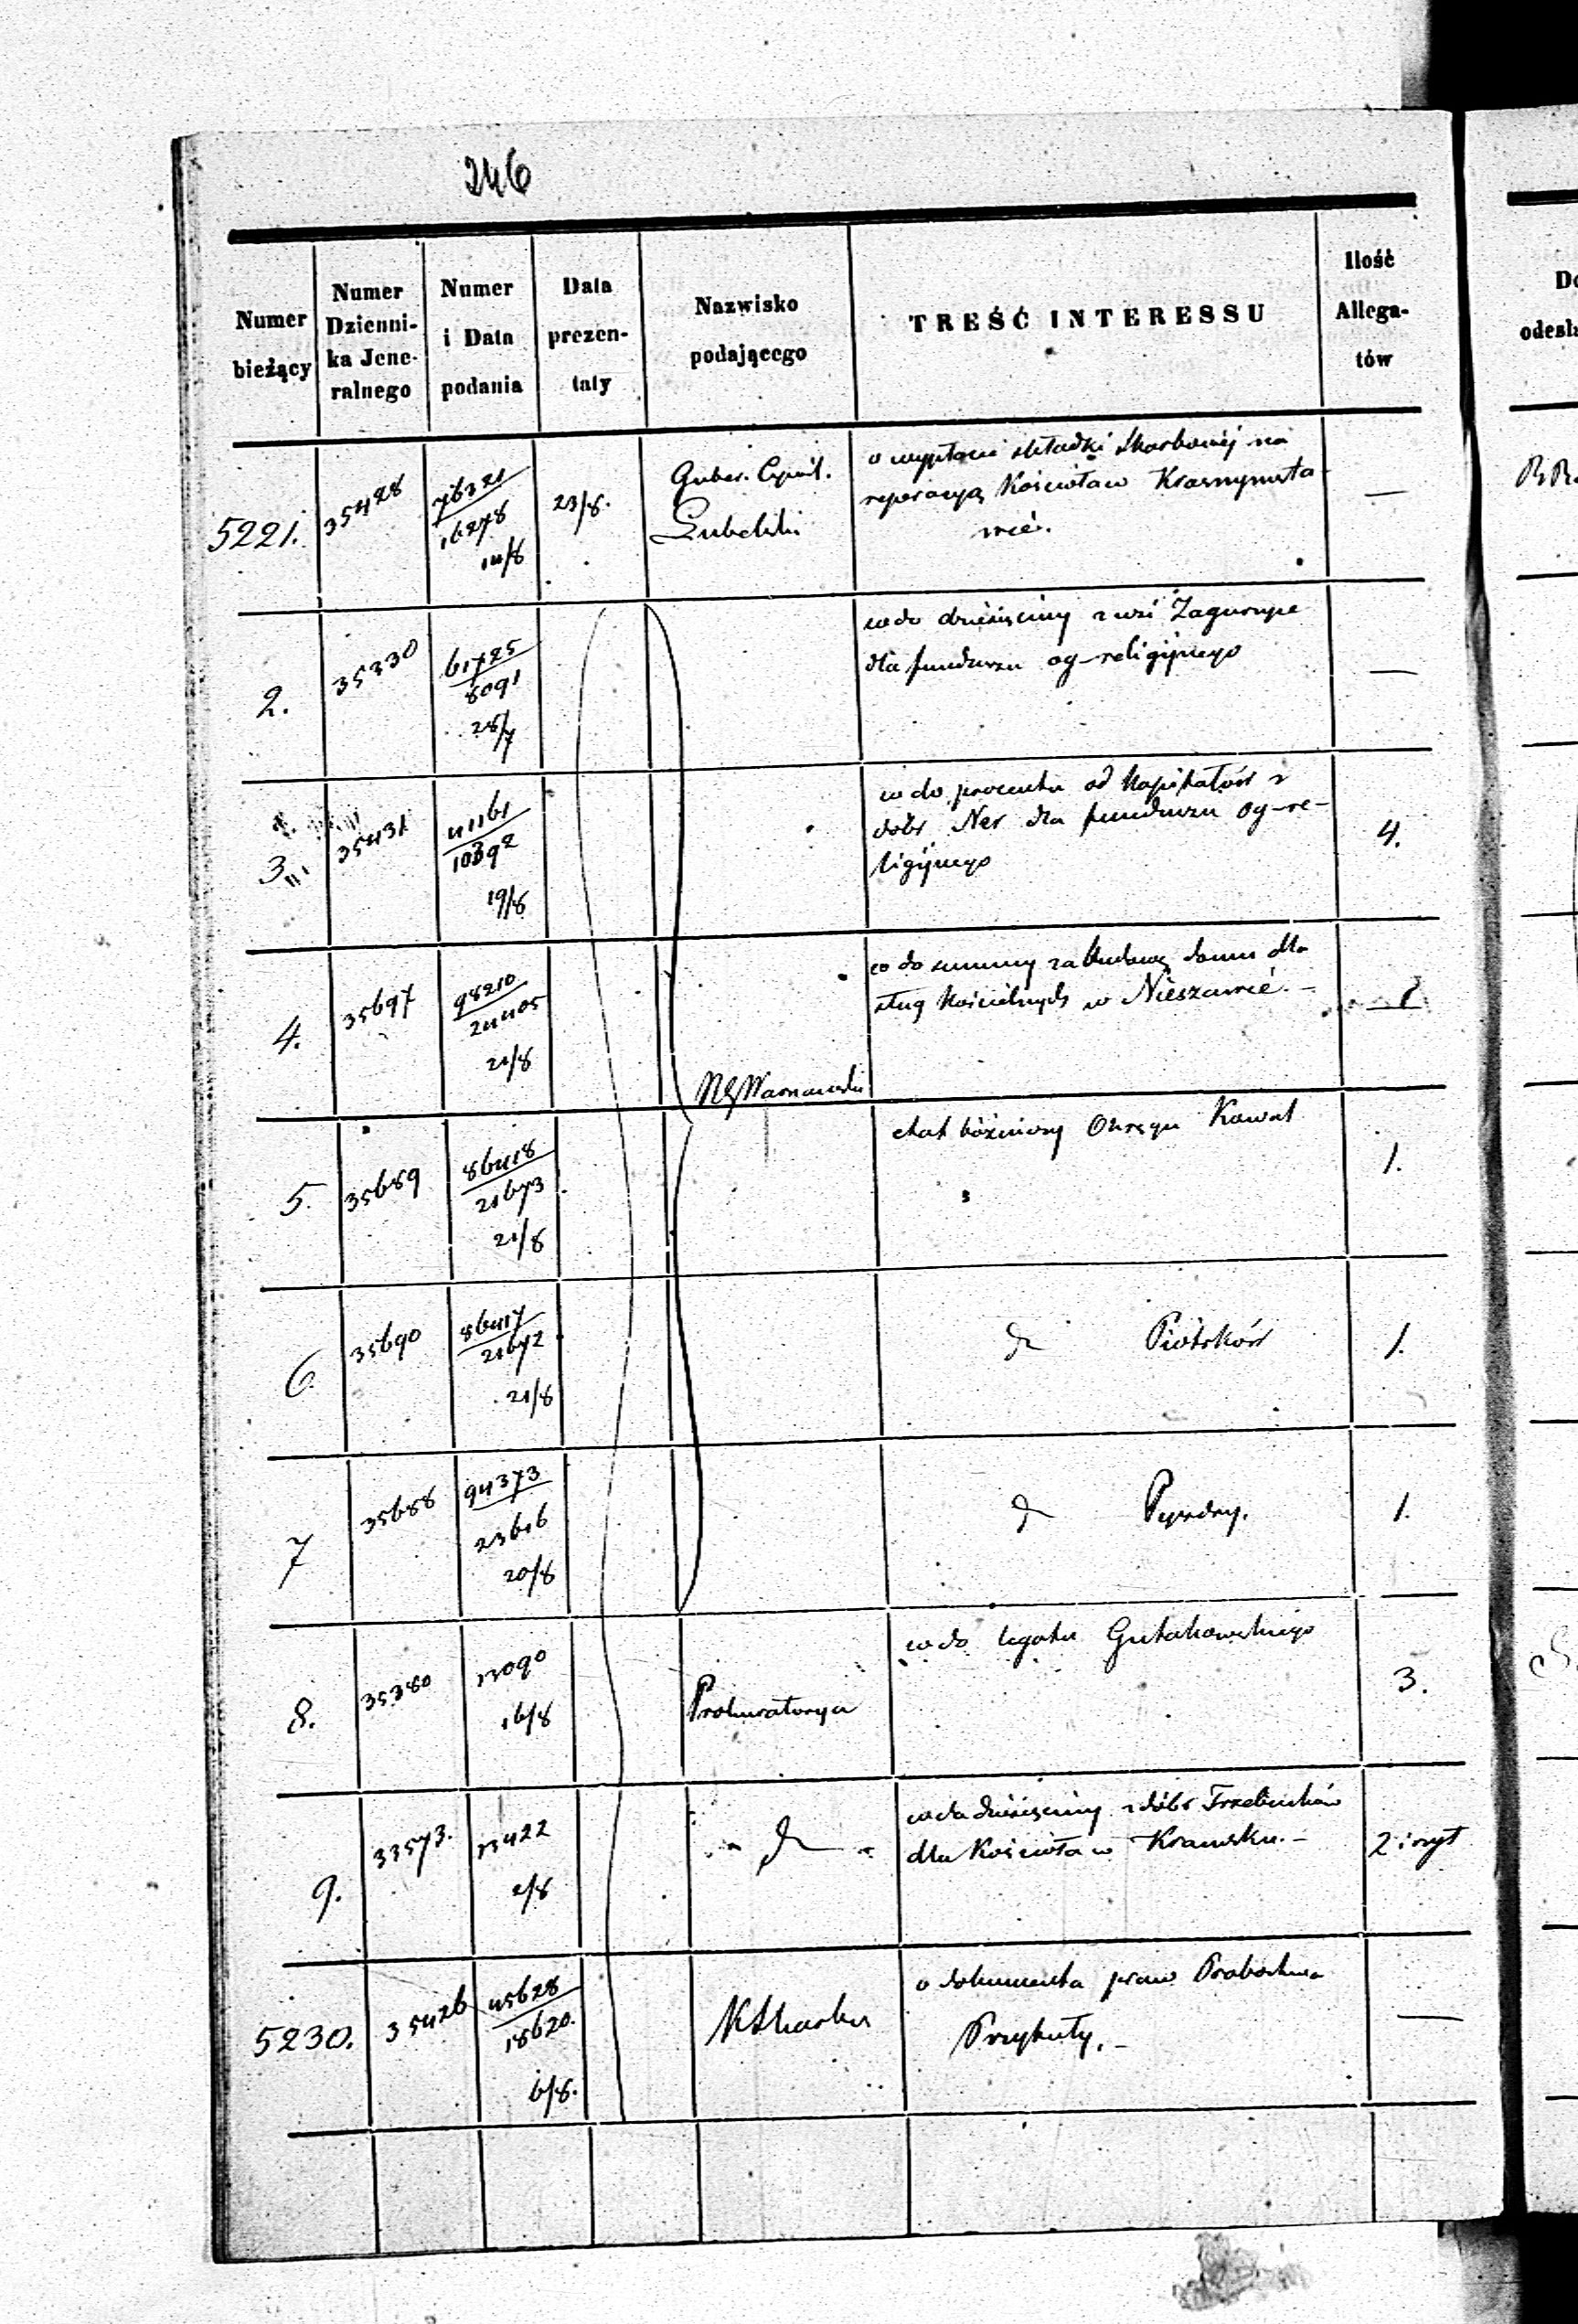 246
Numer bieżący
Numer Dzienni-ka Jene-ralnego
Numer i Data podania
Data prezen-taty
Nazwisko podającego
TREŚĆ INTERESSU
Ilość Allega-tów
Do
odesła
5221. 35428 76321 16278 14/8 23/8. Guber. Cywil. Lubelski
o wypłacie składki skarbowej na
reperacyą Kościoła w Krasnymsta-
wie.
—
2. 35330 61725 8091 28/7
co do dziesięciny z wsi
dla funduszu og-religijnego
—
3 35431 41161 10392 19/8
co do procentu od Kapitałów z
dóbr Ner dla funduszu og-re-
ligijnego
4.
4. 35697 98210 24405 21/8 RG Warszawski
co do summy za budowę domu dla
sług Kościelnych w Nieszawie. —
5. 35689 86418 21673 21/8
etat bóżniczy Okręgu Kowal
1.
6. 35690 86417 21672 21/8
d Piotrków
1.
7 35688 94373 23616 20/8
d Pyzdry.
1.
8. 35380 13090 16/8 Prokuratorya
co do legatu Gutakowskiego
3.
9. 33573. 13422 2/8 - d -
co do dziesięciny z dóbr
dla Kościoła w —
2 i
5230. 35426 45628 18620. 6/8. K Skarbu
o dokumenta praw Probostwa
Przybuty. —
—